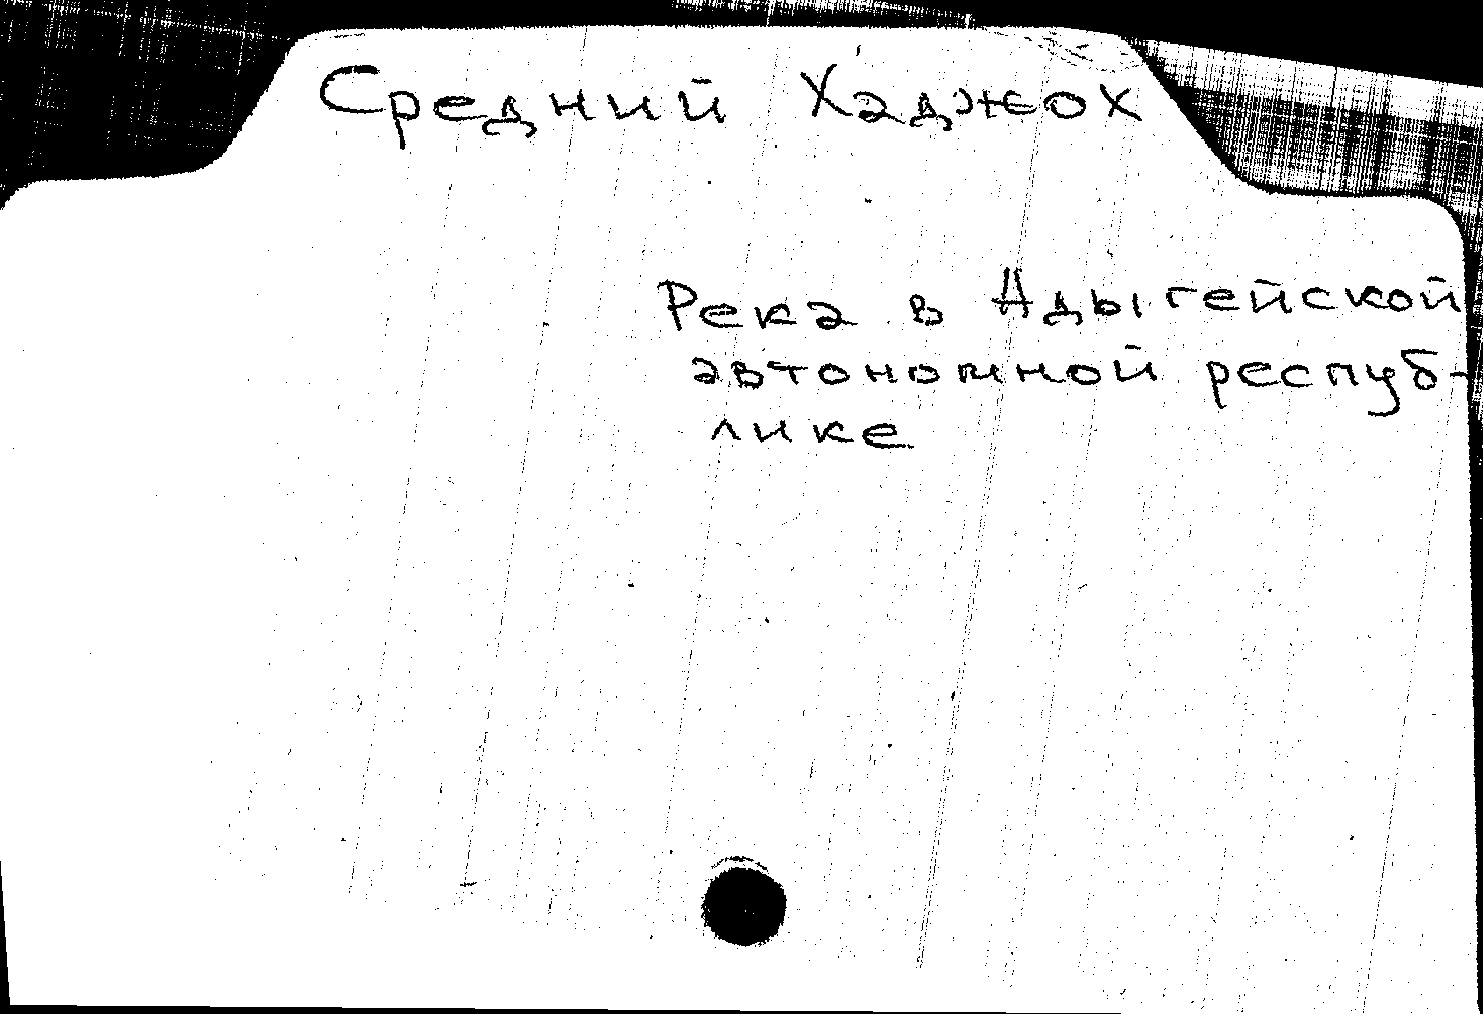 Средний Хаджох
Река в Адыгейской
автономной респуб-
лике